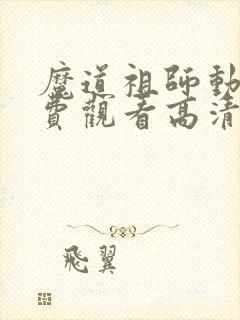 魔道祖師動
費觀看高清
飛翼